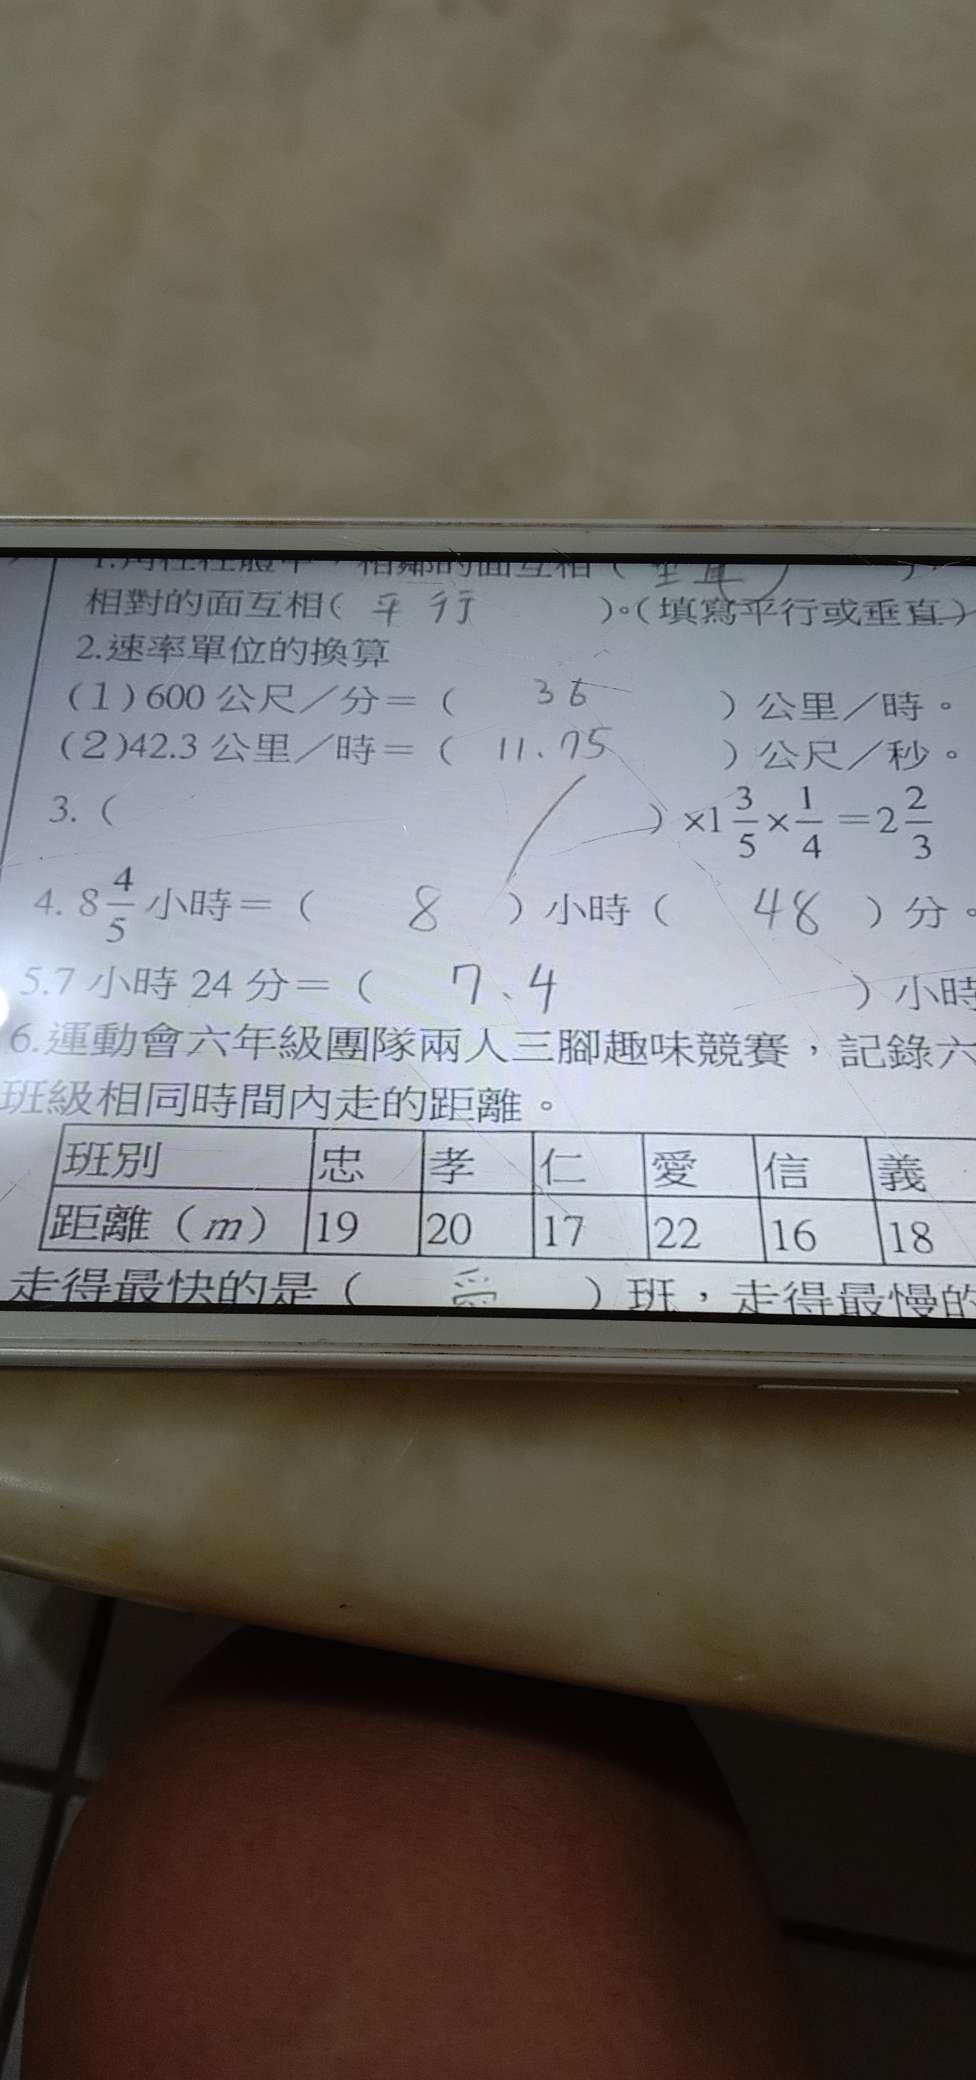 1.角柱柱體中，相鄰的面互相（垂直），
相對的面互相(平行)。(填寫平行或垂直)
2.速率單位的換算
(1)600公尺／分＝（36）公里／時。
(2)42.3公里／時＝（11.75）公尺／秒。
3.（ ）×1 3/5×1/4=2 2/3
4. 8 4/5 小時＝（8）小時（48）分。
5.7小時24分＝（7.4）小時
6.運動會六年級團隊兩人三腳趣味競賽，記錄六
班級相同時間內走的距離。
班別 忠 孝 仁 愛 信 義
距離（m） 19 20 17 22 16 18
走得最快的是（ ）班，走得最慢的